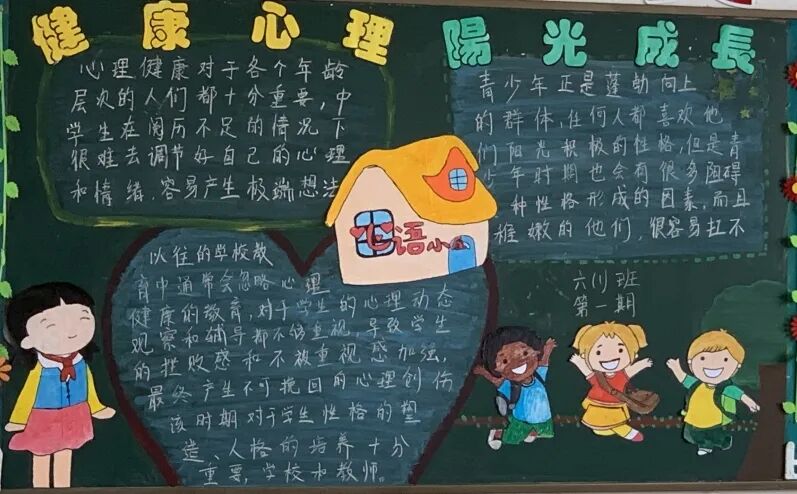 健康心理 陽光成長
心理健康对于各个年龄
层次的人们都十分重要,中
学生在阅历不足的情况下
很难去调节好自己的心理
和情绪,容易产生极端想法
青少年正是蓬勃向上
的群体,任何人都喜欢他
们阳光积极的性格,但是青
少年时期也会有很多阻碍
种性格形成的因素,而且
稚嫩的他们,很容易扛不
心语小屋
以往的学校教
育中通常会忽略心理
健康的教育,对于学生的心理动态
观察和辅导都不够重视,导致学生
的挫败感和不被重视感加强,
最终产生不可挽回的心理创伤
该时期对于学生性格的塑
造、人格的培养十分
重要,学校和教师。
六(1)班
第一期